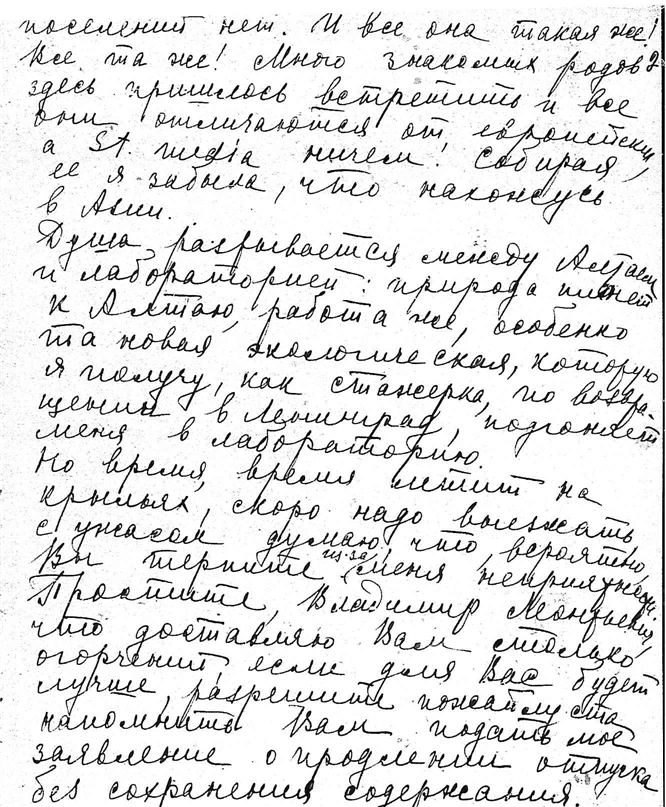 поселений нет. И все она такая же!
Все та же! Много знакомых родов
здесь пришлось встретить и все
они отличаются от европейских,
а St. media ничем. Собирая
ее я забыла, что нахожусь
в Азии.
Душа разрывается между Алтаем
и лабораторией: природа тянет
к Алтаю, работа же, особенно
та новая экологическая, которую
я получу, как стажерка, по возвра-
щении в Ленинград, подгоняет
меня в лабораторию.
Но время, время летит на
крыльях, скоро надо выезжать,
с ужасом думаю, что, вероятно,
Вы терпите из-за меня неприятности.
Простите, Владимир Леонтьевич,
что доставляю Вам столько
огорчений если для Вас будет
лучше, разрешите пожайлуста
напомнить Вам подать мое
заявление о продлении отпуска
без сохранения содержания